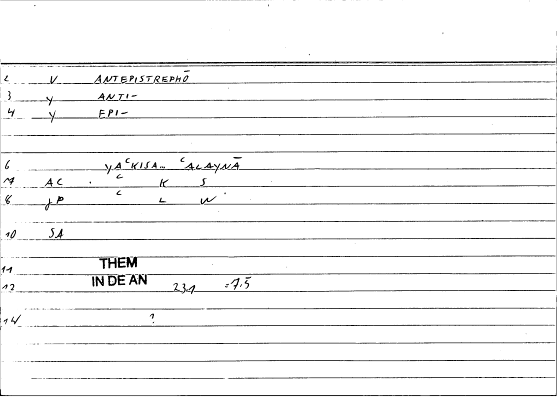 2 V ANTEPISTREPHŌ
3 y ANTI-
4 y EPI-
6 yAᶜKISA... ᶜALAYNĀ
7 AC . ᶜ K S
8 jP ᶜ L W
10 SA
11 THEM
12 IN DE AN 231 =7.5
14 ?